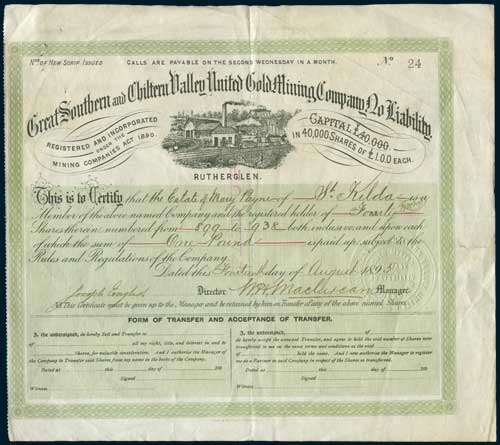 Nos OF NEW SCRIP ISSUED
CALLS ARE PAYABLE ON THE SECOND WEDNESDAY IN A MONTH.
No 24
Great Southern and Chiltern Valley United Gold Mining Company No Liability.
REGISTERED AND INCORPORATED
UNDER THE
MINING COMPANIES ACT 1890.
CAPITAL £40,000
IN 40,000 SHARES OF £1.0.0 EACH.
RUTHERGLEN.
This is to Certify that the Estate of Mary Payne of St. Kilda is a
Member of the above named Company and the registered holder of
Shares therein numbered from 899 to 938 both inclusive and upon each
of which the sum of One Pound is paid up, subject to the
Rules and Regulations of the Company.
Dated this day of August 1895
Joseph Director Manager.
This Certificate must be given up to the Manager and be retained by him on Transfer of any of the above named Shares.
FORM OF TRANSFER AND ACCEPTANCE OF TRANSFER.
I, the undersigned, do hereby Sell and Transfer to
of all my right, title, and interest in and to
Shares, for valuable consideration. And I authorise the Manager of
the Company to Transfer said Shares from my name in the books of the Company.
Dated at this day of 189
Signed
Witness
I, the undersigned, of
do hereby accept the annexed Transfer, and agree to hold the said number of Shares now
transferred to me on the same terms and conditions as the said
of held the same. And I now authorise the Manager to register
me as a Partner in said Company in respect of the Shares as transferred.
Dated at this day of 189
Signed
Witness